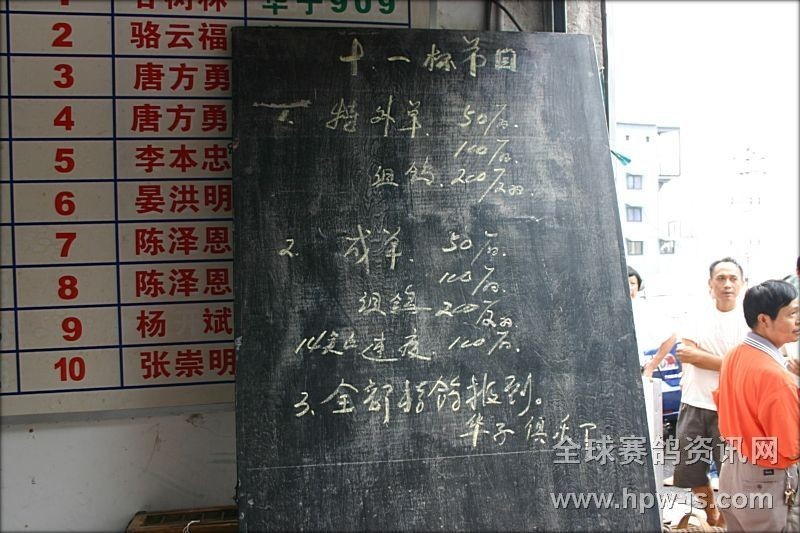 1
华宇909
2 骆云福
3 唐方勇
4 唐方勇
5 李本忠
6 晏洪明
7 陈泽恩
8 陈泽恩
9 杨 斌
10 张崇明
十.一杯节目
1. 特外单. 50/石.
100/石.
组鸽. 200/石
2. 成单. 50/石.
100/石.
组鸽 200/石
速度. 100/石.
3、全部指鸽报到。
华子俱乐丁
全球赛鸽资讯网
www.hpw-js.com